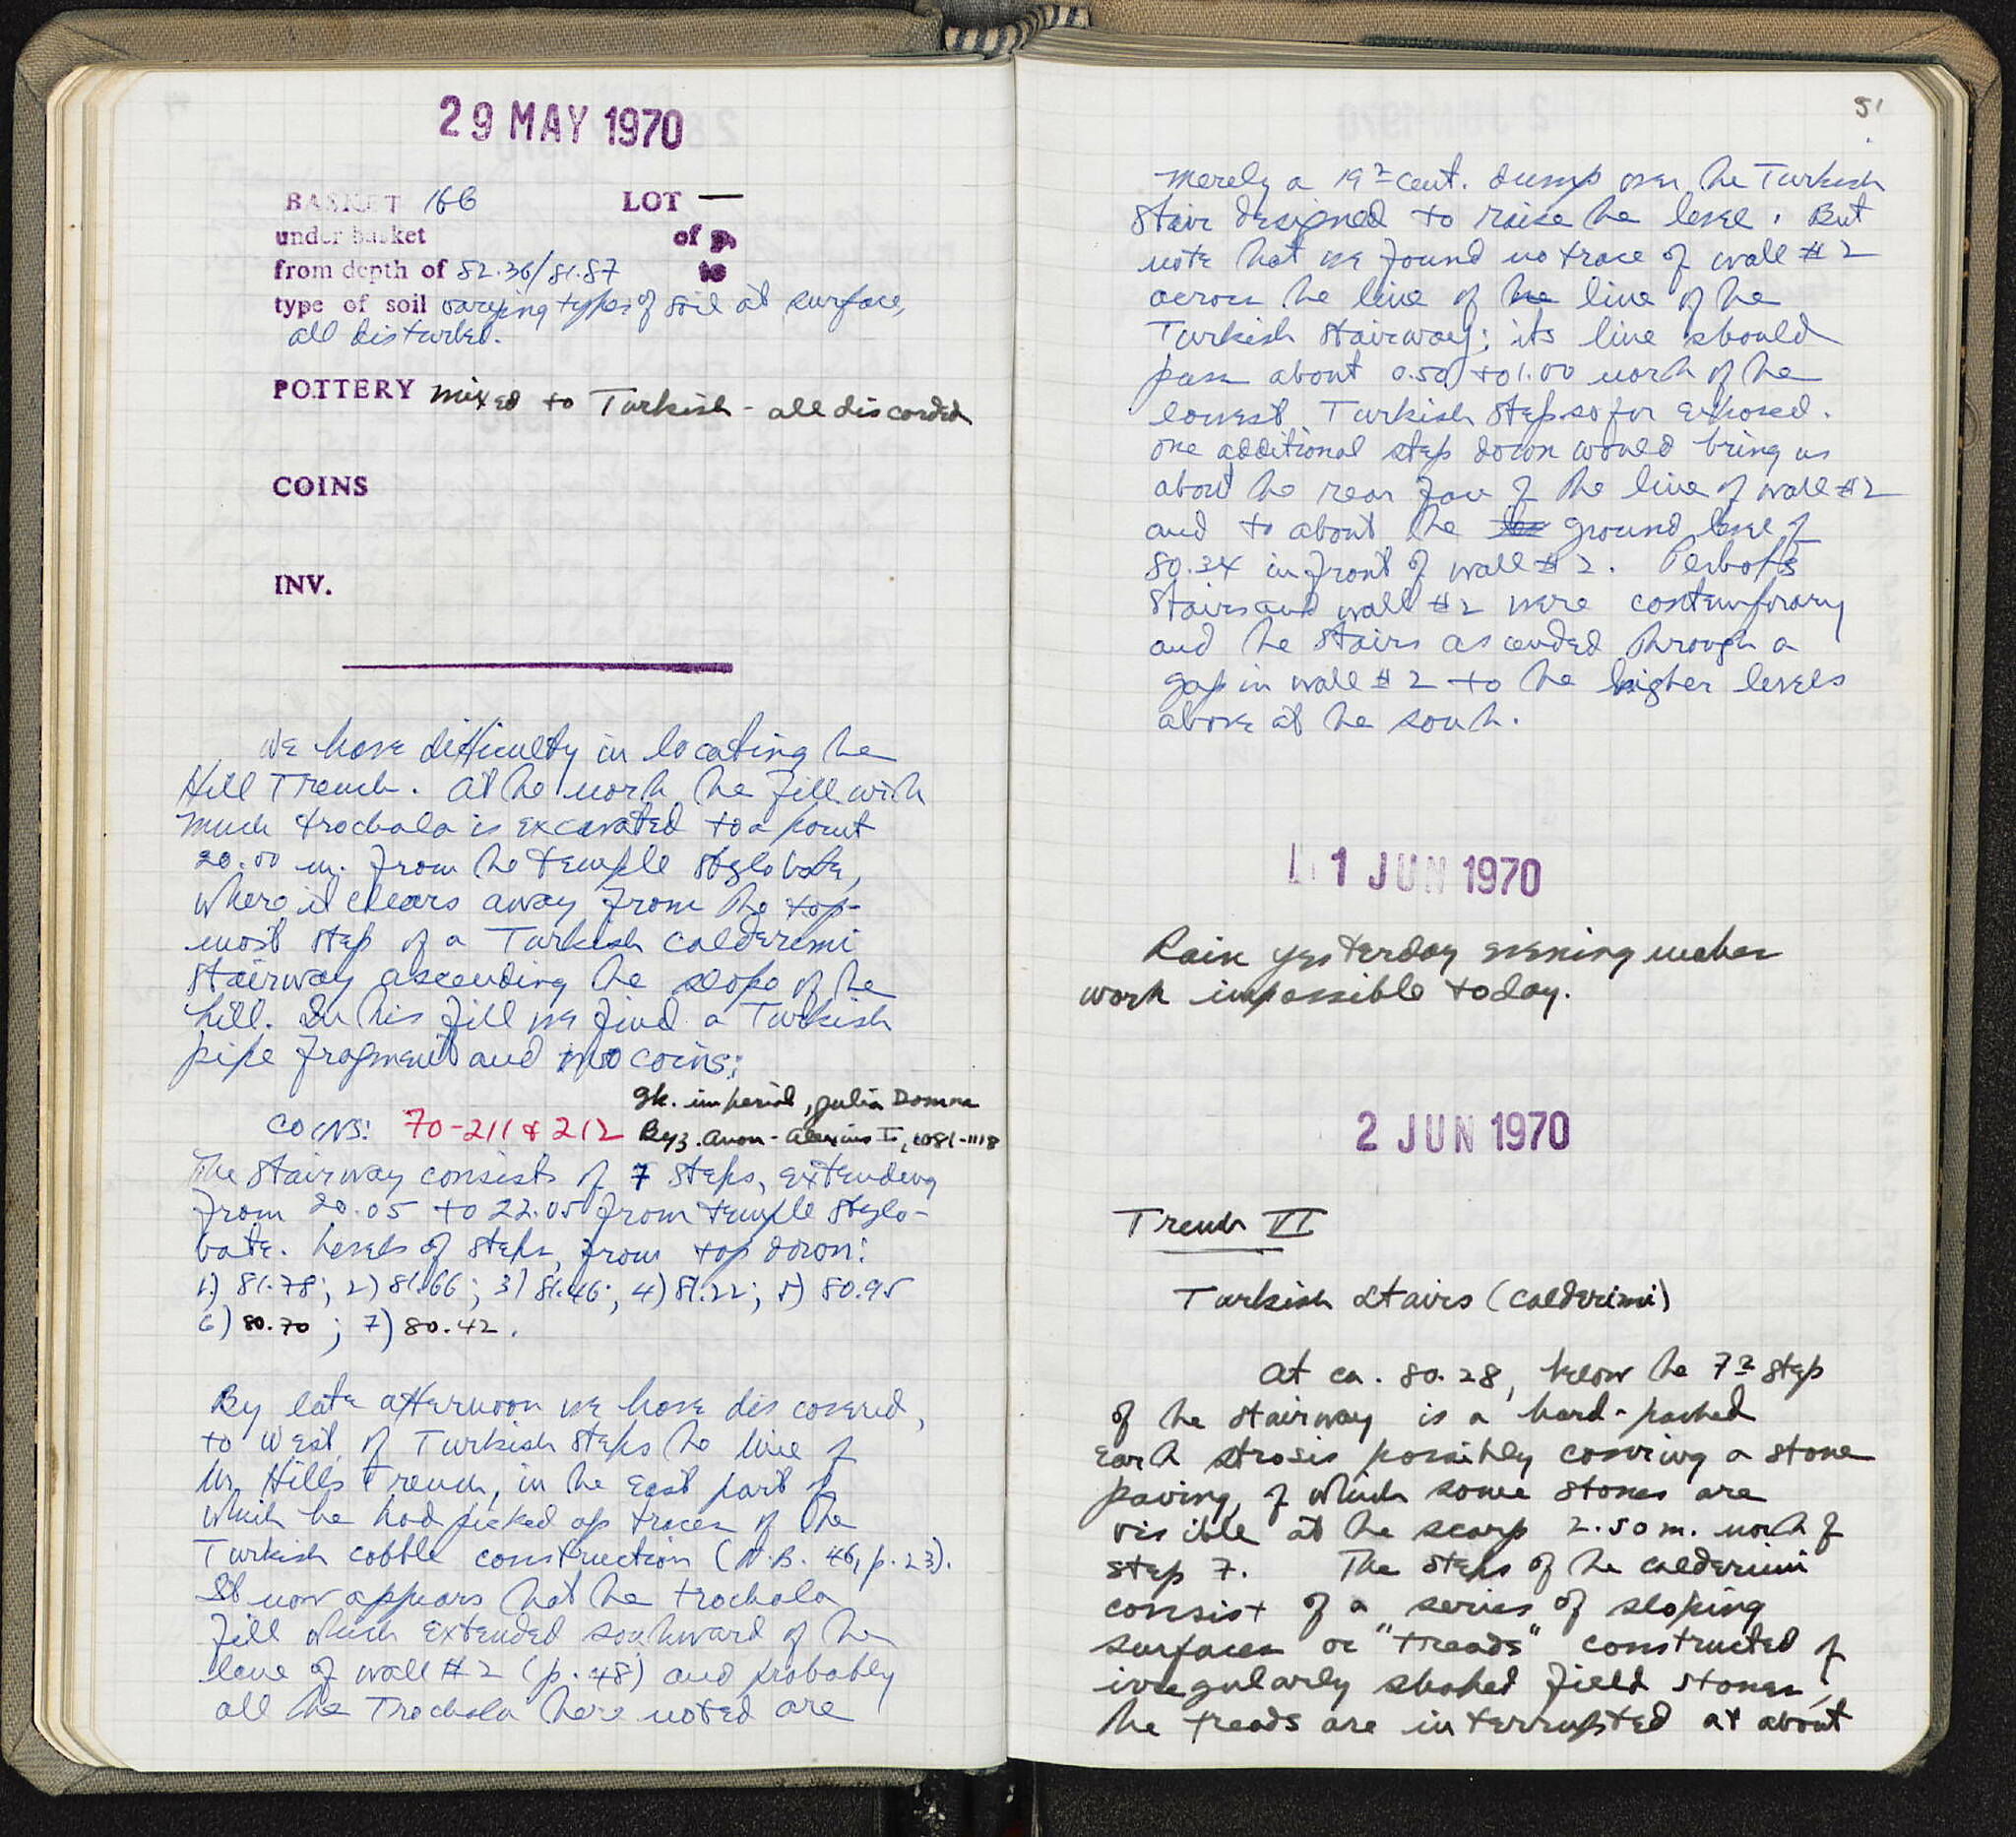 29 MAY 1970
BASKET 166 LOT —
under basket of p.
from depth of 82.36/81.87 to
type of soil varying types of soil at surface,
all disturbed.
POTTERY mixed to Turkish - all discarded
COINS
INV.
We have difficulty in locating the
Hill Trench. At the north the fill with
much trochala is excavated to a point
20.00 m. from the temple stylobate,
where it clears away from the top-
most step of a Turkish calderimi
stairway ascending the slope of the
hill. In this fill we find a Turkish
pipe fragment and two coins:
Gk. imperial, Julia Domna
COINS: 70-211 & 212 Byz. Anon - Alexius I, 1081-1118
The stairway consists of 7 steps, extending
from 20.05 to 22.05 from temple stylo-
bate. Levels of steps, from top down:
1) 81.78; 2) 81.66; 3) 81.46; 4) 81.22; 5) 80.95
6) 80.70; 7) 80.42.
By late afternoon we have discovered,
to west of Turkish steps the line of
Mr Hill's Trench, in the east part of
which he had picked up traces of the
Turkish cobble construction (N.B. 46, p. 23).
It now appears that the trochala
fill which extended southward of the
line of wall #2 (p. 48) and probably
all the Trochala here noted are
51
merely a 19th cent. dump over the Turkish
stair designed to raise the level. But
note that we found no trace of wall #2
across the line of the line of the
Turkish stairway; its line should
pass about 0.50 to 1.00 north of the
lowest Turkish step so far exposed.
One additional step down would bring us
about the rear face of the line of wall #2
and to about the ground level of
80.34 in front of wall #2. Perhaps
stairs and wall #2 were contemporary
and the stairs ascended through a
gap in wall #2 to the higher levels
above at the south.
1 JUN 1970
Rain yesterday evening makes
work impossible today.
2 JUN 1970
Trench VI
Turkish stairs (calderimi)
At ca. 80.28, below the 7th step
of the stairway is a hard-packed
earth strosis possibly covering a stone
paving, of which some stones are
visible at the scarp 2.50 m. north of
step 7. The steps of the calderimi
consist of a series of sloping
surfaces or "treads" constructed of
irregularly shaped field stones;
the treads are interrupted at about